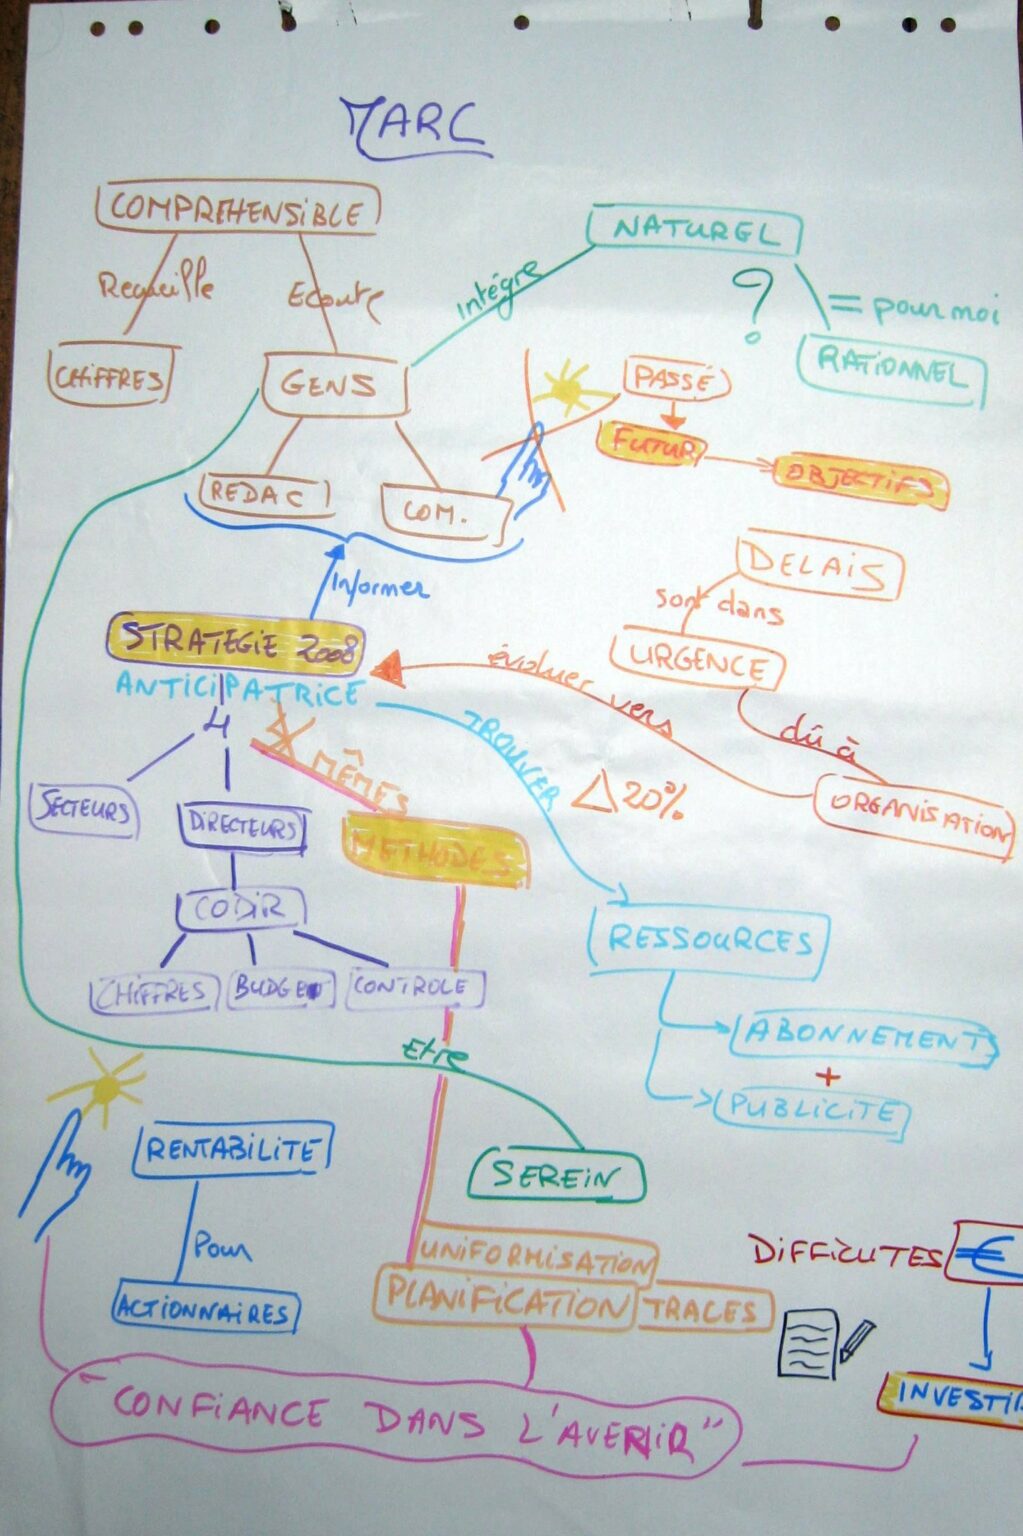 MARC
COMPREHENSIBLE
NATUREL
Recueille
Ecoute
Intégre
?
= pour moi
RATIONNEL
CHIFFRES
GENS
PASSÉ
FUTUR
OBJECTIFS
REDAC
COM.
DELAIS
Informer
sont dans
STRATEGIE 2008
URGENCE
évoluer vers
ANTICIPATRICE
4
dû à
TROUVER
MÊMES
△ 20%
SECTEURS
DIRECTEURS
ORGANISATION
METHODES
CODIR
RESSOURCES
CHIFFRES
BUDGET
CONTROLE
ABONNEMENTS
Etre
+
PUBLICITE
RENTABILITE
SEREIN
Pour
UNIFORMISATION
DIFFICUTES
€
ACTIONNAIRES
PLANIFICATION
TRACES
INVESTIR
"CONFIANCE DANS L'AVENIR"